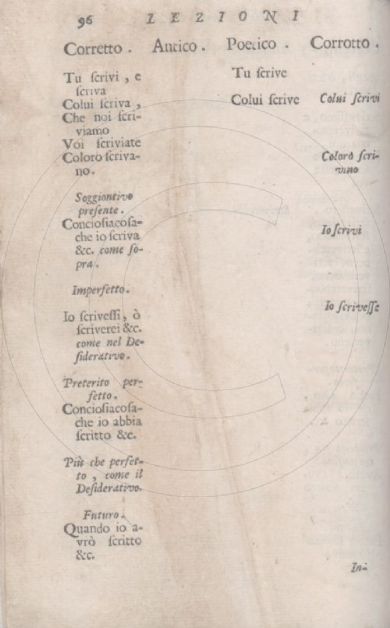 96 LEZIONI
Corretto. Antico. Poetico. Corrotto.
Tu scrivi, e Tu scrive
scriva
Colui scriva, Colui scrive Colui scrivi
Che noi scri-
viamo
Voi scriviate
Coloro scriva- Colorò scri-
no. vino
Soggiontivo
presente.
Conciosiacosa-
che io scriva Io scrivi
&c. come so-
pra.
Imperfetto.
Io scrivesse
Io scrivessi, ò
scriverei &c.
come nel De-
siderativo.
Preterito per-
fetto.
Conciosiacosa-
che io abbia
scritto &c.
Più che perfet-
to, come il
Desiderativo.
Futuro.
Quando io a-
vrò scritto
&c.
In-